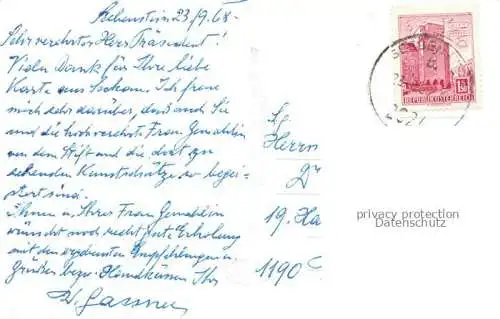 Seebenstein 23/9.68-
Sehr verehrter Herr Präsident!
Vielen Dank für Ihre liebe
Karte aus Seckau. Ich freue
mich sehr darüber, daß auch Sie
und die hochverehrte Frau Gemahlin
von dem Stift und die dort zu
sehenden Kunstschätze so begei-
stert sind.
Ihnen u. Ihrer Frau Gemahlin
wünscht noch recht gute Erholung
mit den ergebensten Empfehlungen u.
Grüßen bezw. Handküssen Ihr
W. Gassner
S.g.
Herrn
Dr
19. Ha
1190
REPUBLIK ÖSTERREICH
privacy protection
Datenschutz